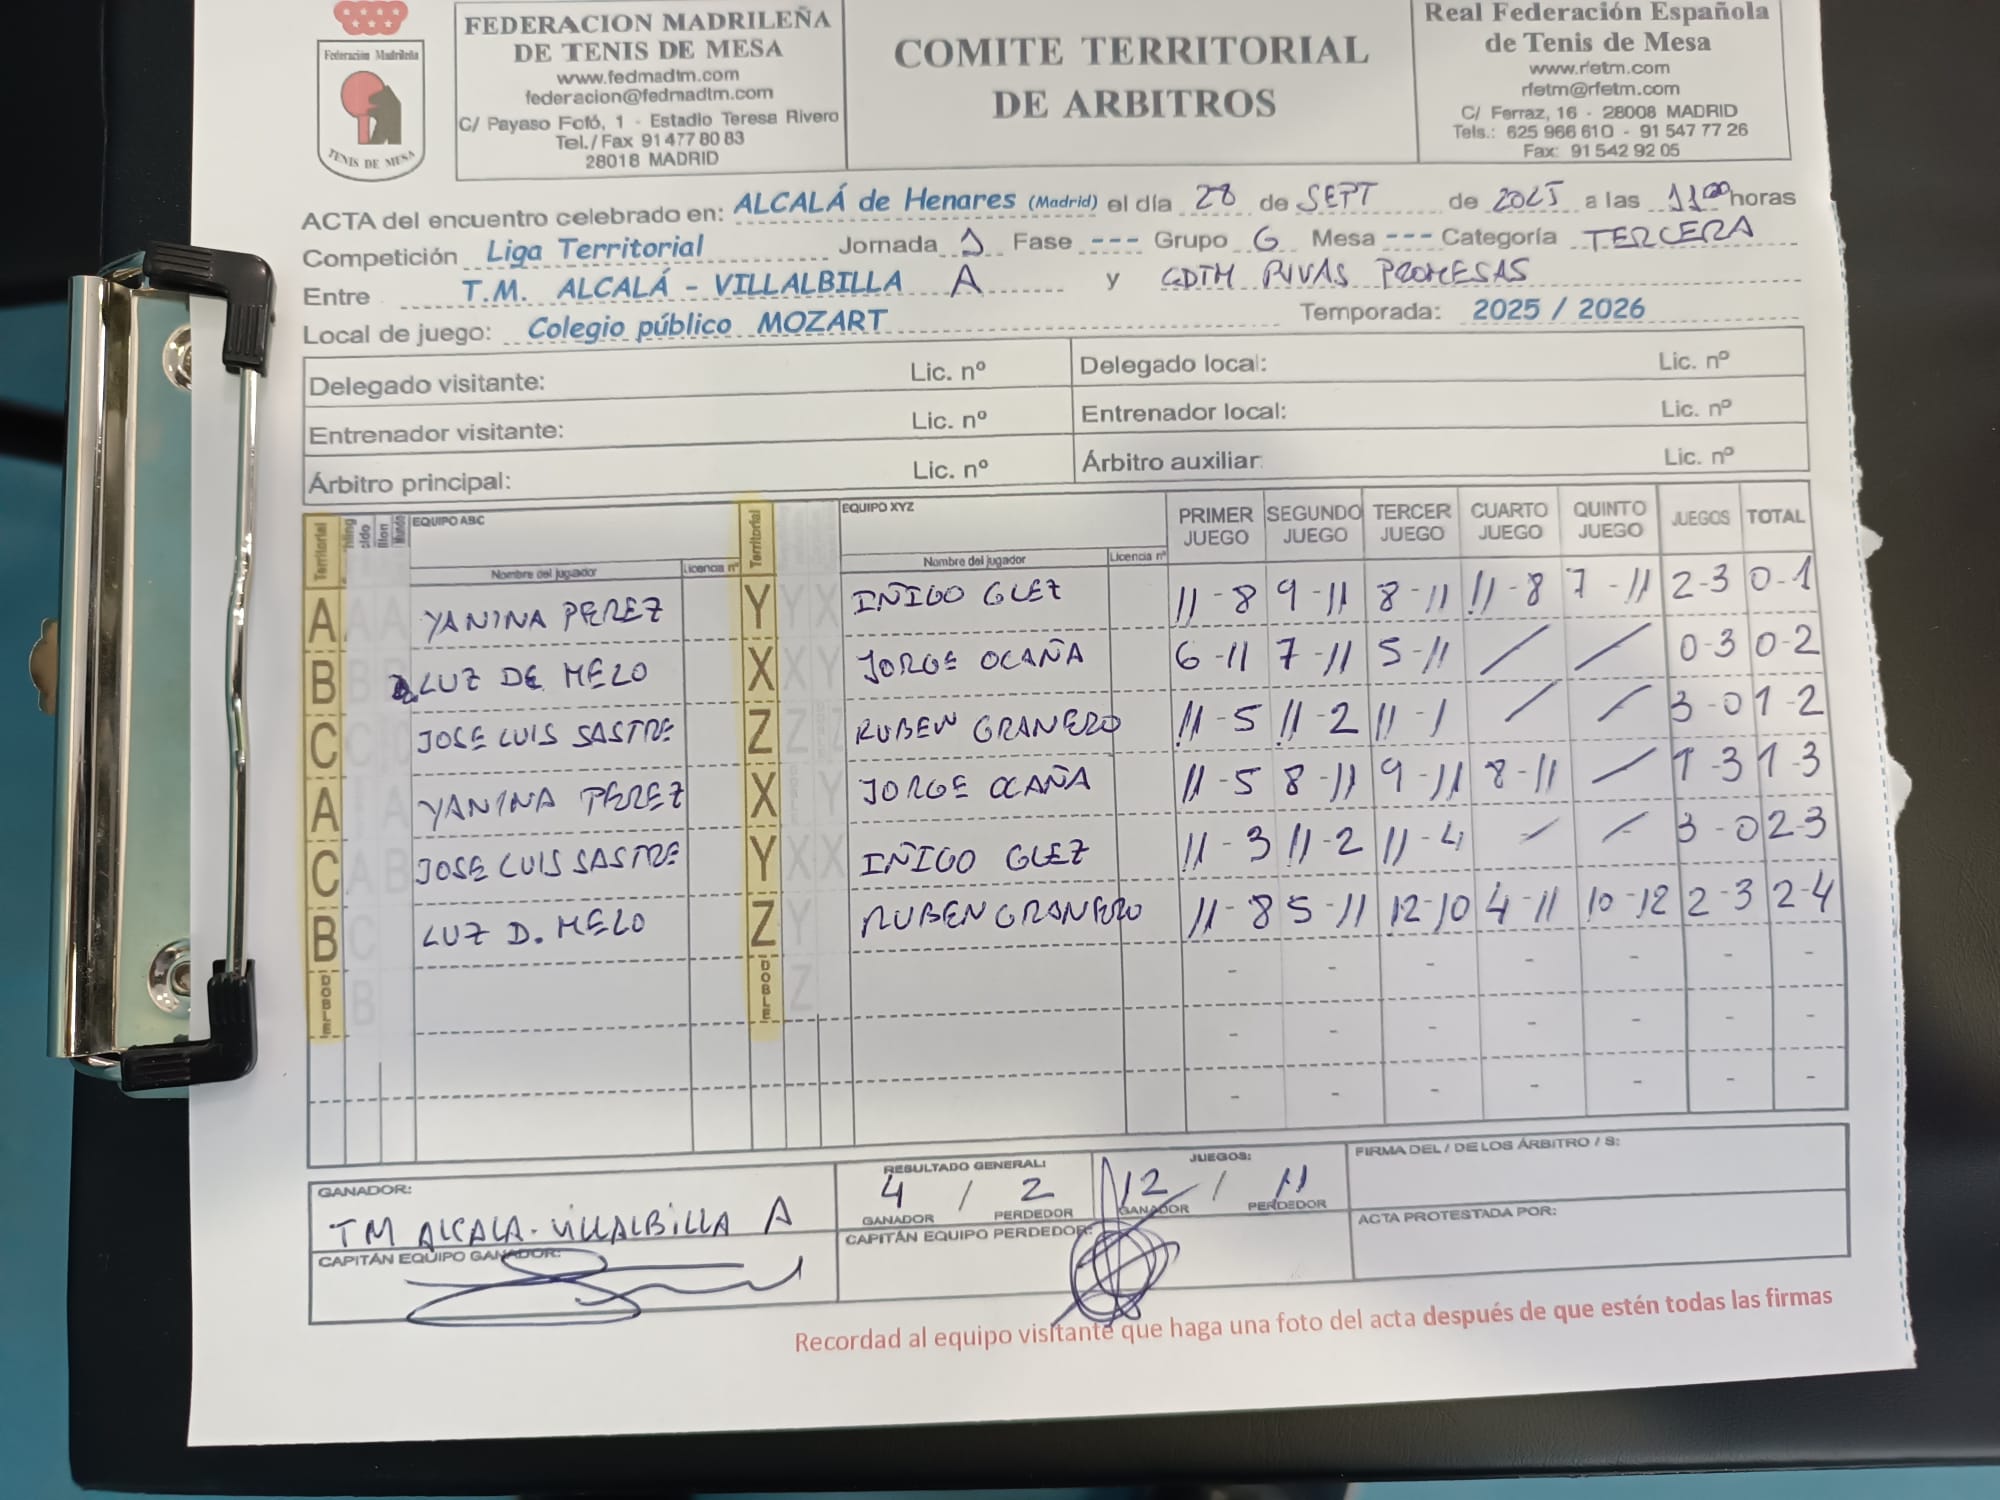 Federación Madrileña
TENIS DE MESA
FEDERACION MADRILEÑA
DE TENIS DE MESA
www.fedmadtm.com
federacion@fedmadtm.com
C/ Payaso Fofó, 1 - Estadio Teresa Rivero
Tel./Fax 91 477 80 83
28018 MADRID
COMITE TERRITORIAL
DE ARBITROS
Real Federación Española
de Tenis de Mesa
www.rfetm.com
rfetm@rfetm.com
C/ Ferraz, 16 - 28008 MADRID
Tels.: 625 966 610 - 91 547 77 26
Fax: 91 542 92 05
ACTA del encuentro celebrado en: ALCALÁ de Henares (Madrid) el día 28 de SEPT de 2025 a las 11 00 horas
Competición Liga Territorial Jornada 1 Fase --- Grupo 6 Mesa --- Categoría TERCERA
Entre T.M. ALCALÁ - VILLALBILLA A y CDTM RIVAS PROMESAS
Local de juego: Colegio público MOZART Temporada: 2025 / 2026
Delegado visitante: Lic. nº Delegado local: Lic. nº
Entrenador visitante: Lic. nº Entrenador local: Lic. nº
Árbitro principal: Lic. nº Árbitro auxiliar: Lic. nº
Territorial EQUIPO ABC Territorial EQUIPO XYZ PRIMER JUEGO SEGUNDO JUEGO TERCER JUEGO CUARTO JUEGO QUINTO JUEGO JUEGOS TOTAL
Nombre del jugador Licencia nº Nombre del jugador Licencia nº
A YANINA PEREZ Y IÑIGO GLEZ 11-8 9-11 8-11 11-8 7-11 2-3 0-1
B LUZ DE MELO X JORGE OCAÑA 6-11 7-11 5-11 / / 0-3 0-2
C JOSE LUIS SASTRE Z RUBEN GRANERO 11-5 11-2 11-1 / / 3-0 1-2
A YANINA PEREZ X JORGE OCAÑA 11-5 8-11 9-11 8-11 / 1-3 1-3
C JOSE LUIS SASTRE Y IÑIGO GLEZ 11-3 11-2 11-4 / / 3-0 2-3
B LUZ D. MELO Z RUBEN GRANERO 11-8 5-11 12-10 4-11 10-12 2-3 2-4
DOBLE DOBLE - - - - - - -
- - - - - - -
- - - - - - -
GANADOR: TM ALCALA-VILLALBILLA A
RESULTADO GENERAL: 4 / 2
GANADOR PERDEDOR
JUEGOS: 12 / 11
GANADOR PERDEDOR
FIRMA DEL / DE LOS ÁRBITRO / S:
CAPITÁN EQUIPO GANADOR:
CAPITÁN EQUIPO PERDEDOR:
ACTA PROTESTADA POR:
Recordad al equipo visitante que haga una foto del acta después de que estén todas las firmas